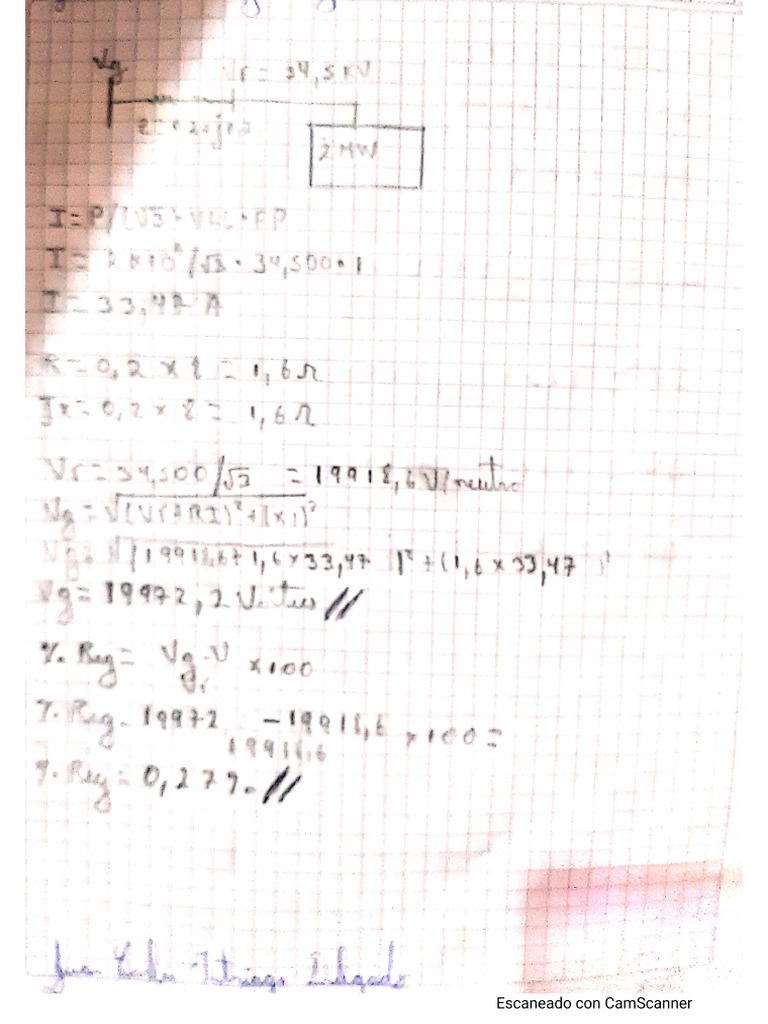 Vg
Vr = 34,5 KV
2 MW
I = P/(√3 * VLL * FP
I = 2x10⁶/√3 * 34,500 * 1
I = 33,47 A
R = 0,2 x 8 = 1,6 Ω
Jx = 0,2 x 8 = 1,6 Ω
Vr = 34,500/√3 = 19918,6 V/neutro
Vg = √(Vr+RI)²+(x I)²
Vg = √(19918,6+1,6x33,47)²+(1,6x33,47)²
Vg = 19972,2 Voltios //
%. Reg = Vg-Vr x100
%. Reg = 19972 - 19918,6 x100 =
19918,6
%. Reg = 0,27%. //
Juan
Escaneado con CamScanner